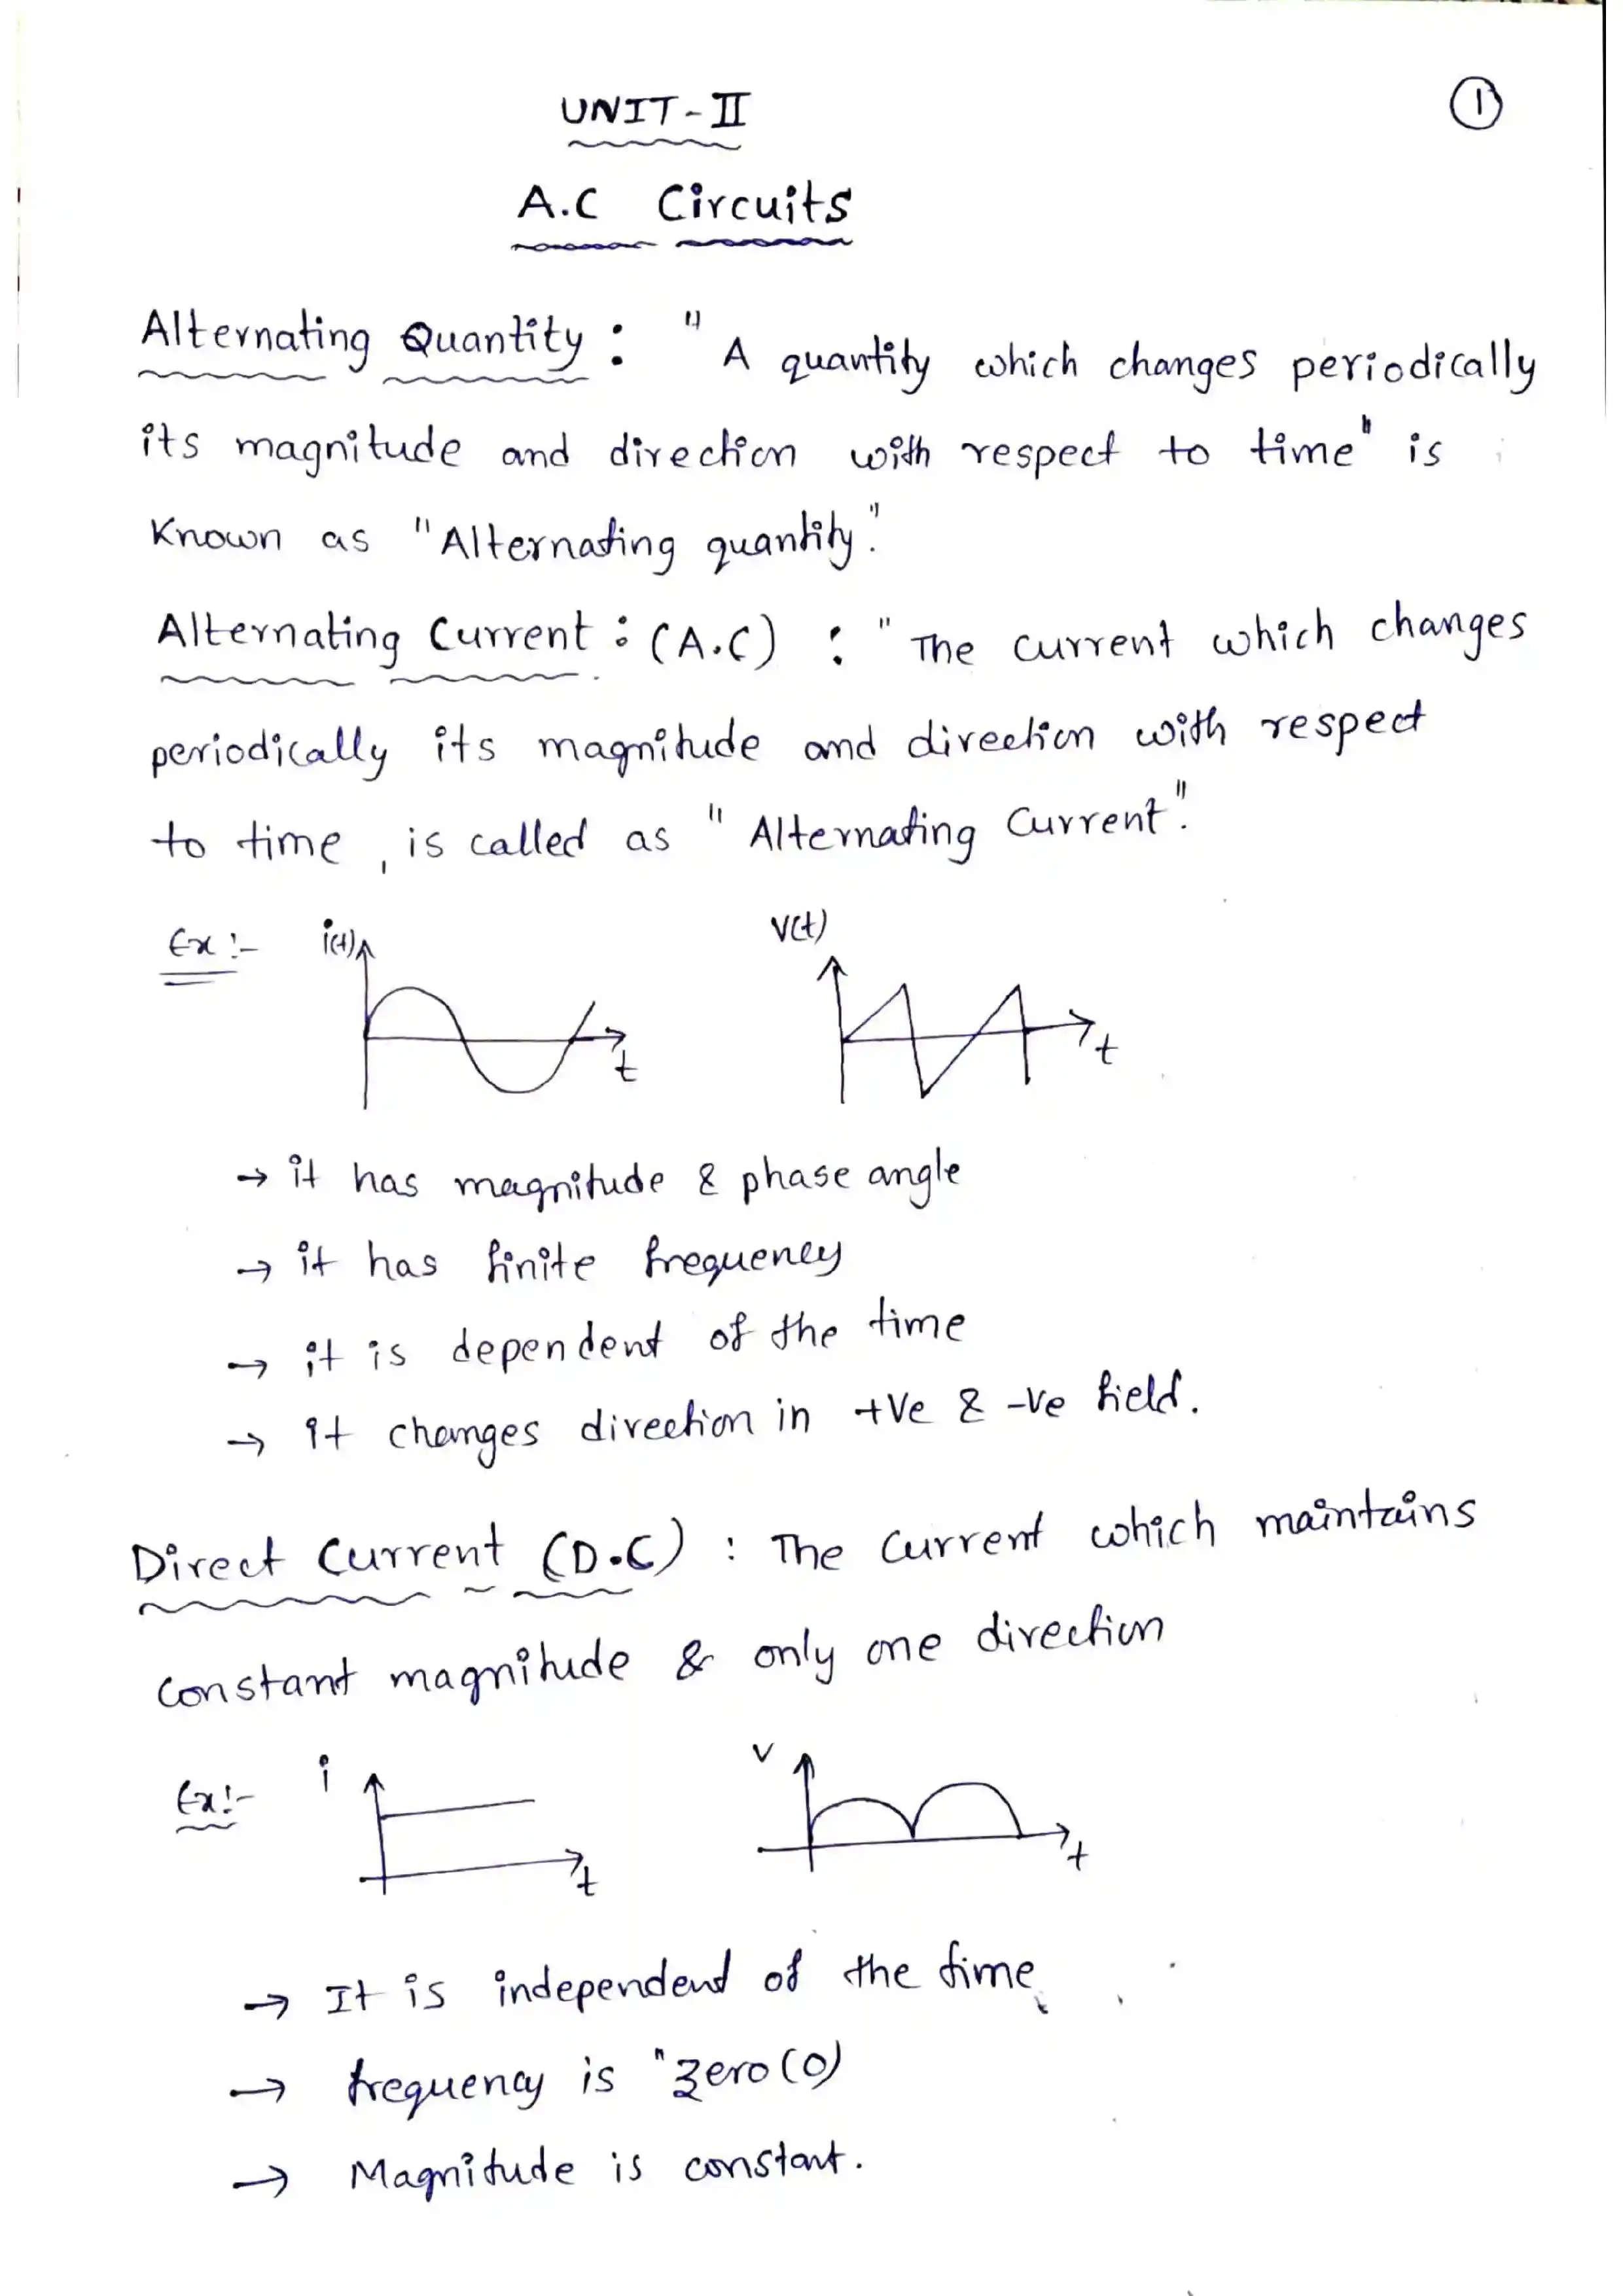 UNIT-II
1
A.C Circuits
Alternating Quantity : " A quantity which changes periodically
its magnitude and direction with respect to time" is
Known as "Alternating quantity."
Alternating Current : (A.C) : " The current which changes
periodically its magnitude and direction with respect
to time , is called as " Alternating Current".
Ex :- i(t) V(t)
t t
→ it has magnitude & phase angle
→ it has finite frequency
→ it is dependent of the time
→ it changes direction in +Ve & -Ve field.
Direct Current (D.C) : The Current which maintains
Constant magnitude & only one direction
Ex:- i v
t t
→ It is independent of the time
→ frequency is "Zero (0)
→ Magnitude is constant.